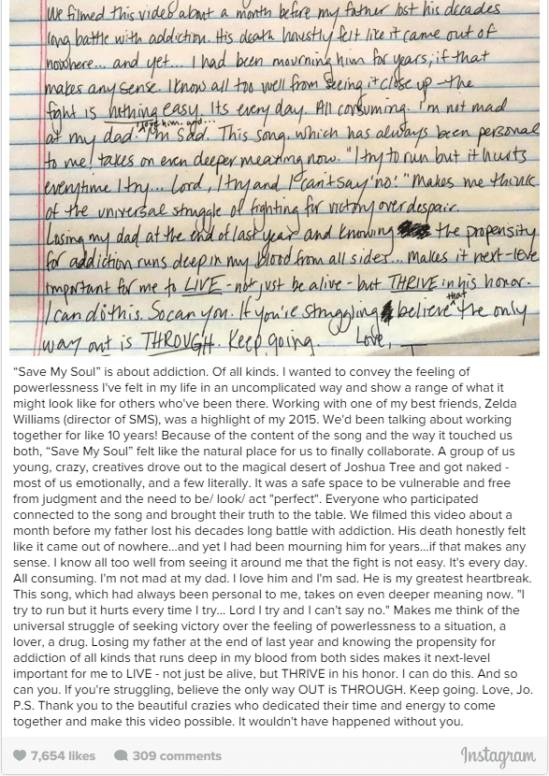 We filmed this video about a month before my father lost his decades
long battle with addiction. His death honestly felt like it came out of
nowhere... and yet... I had been mourning him for years, if that
makes any sense. I know all too well from seeing it close up - the
fight is nothing easy. Its every day. All consuming. I'm not mad
at my dad. I love him. and... I'm sad. This song, which has always been personal
to me, takes on even deeper meaning now. "I try to run but it hurts
everytime I try... Lord, I try and I can't say 'no.'" Makes me think
of the universal struggle of fighting for victory over despair.
Losing my dad at the end of last year and knowing the propensity
for addiction runs deep in my blood from all sides... makes it next-level
important for me to LIVE - not just be alive - but THRIVE in his honor.
I can do this. So can you. If you're struggling believe that the only
way out is THROUGH. Keep going. Love,
"Save My Soul" is about addiction. Of all kinds. I wanted to convey the feeling of
powerlessness I've felt in my life in an uncomplicated way and show a range of what it
might look like for others who've been there. Working with one of my best friends, Zelda
Williams (director of SMS), was a highlight of my 2015. We'd been talking about working
together for like 10 years! Because of the content of the song and the way it touched us
both, "Save My Soul" felt like the natural place for us to finally collaborate. A group of us
young, crazy, creatives drove out to the magical desert of Joshua Tree and got naked -
most of us emotionally, and a few literally. It was a safe space to be vulnerable and free
from judgment and the need to be/ look/ act "perfect". Everyone who participated
connected to the song and brought their truth to the table. We filmed this video about a
month before my father lost his decades long battle with addiction. His death honestly felt
like it came out of nowhere...and yet I had been mourning him for years...if that makes any
sense. I know all too well from seeing it around me that the fight is not easy. It's every day.
All consuming. I'm not mad at my dad. I love him and I'm sad. He is my greatest heartbreak.
This song, which had always been personal to me, takes on even deeper meaning now. "I
try to run but it hurts every time I try... Lord I try and I can't say no." Makes me think of the
universal struggle of seeking victory over the feeling of powerlessness to a situation, a
lover, a drug. Losing my father at the end of last year and knowing the propensity for
addiction of all kinds that runs deep in my blood from both sides makes it next-level
important for me to LIVE - not just be alive, but THRIVE in his honor. I can do this. And so
can you. If you're struggling, believe the only way OUT is THROUGH. Keep going. Love, Jo.
P.S. Thank you to the beautiful crazies who dedicated their time and energy to come
together and make this video possible. It wouldn't have happened without you.
7,654 likes 309 comments Instagram